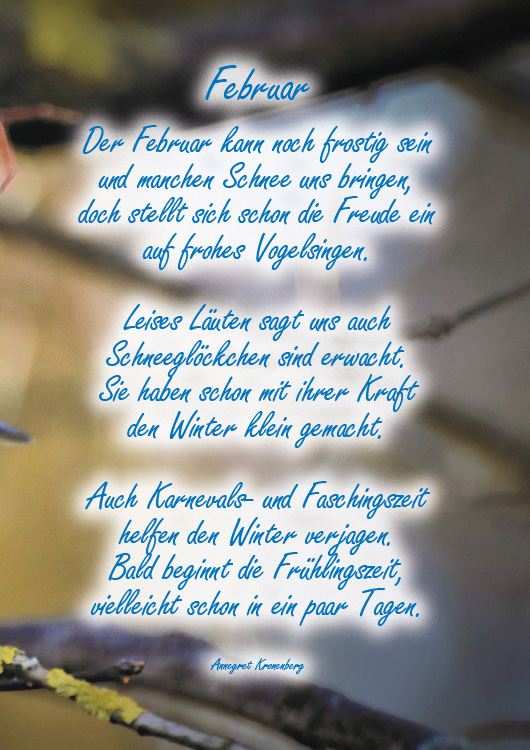 Februar
Der Februar kann noch frostig sein
und manchen Schnee uns bringen,
doch stellt sich schon die Freude ein
auf frohes Vogelsingen.
Leises Läuten sagt uns auch
Schneeglöckchen sind erwacht.
Sie haben schon mit ihrer Kraft
den Winter klein gemacht.
Auch Karnevals- und Faschingszeit
helfen den Winter verjagen.
Bald beginnt die Frühlingszeit,
vielleicht schon in ein paar Tagen.
Annegret Kronenberg